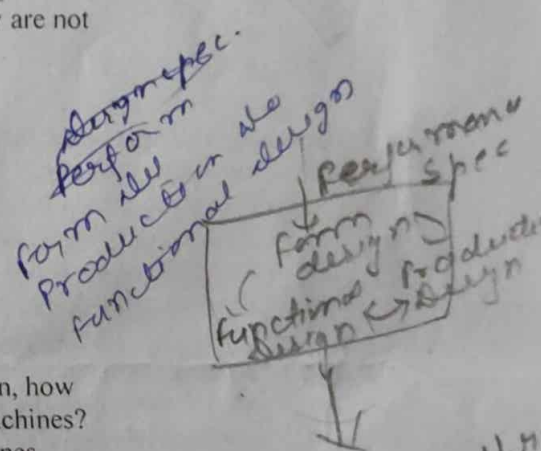 are not
Design spec.
Perform
Form des
Production des
Functional design
Performance
spec
form
design
Production
Design
functional
Design
n, how
chines?